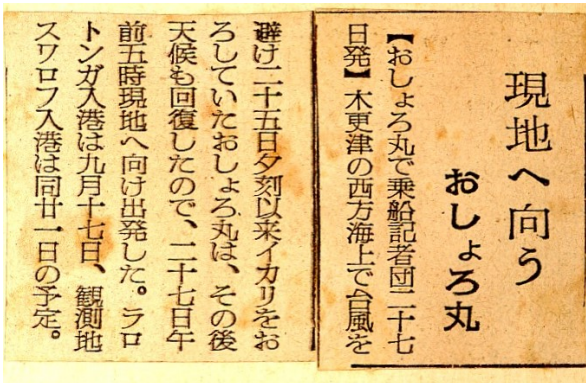 現地へ向う
おしょろ丸
【おしょろ丸で乗船記者団二十七
日発】木更津の西方海上で台風を
避け二十五日夕刻以来イカリをお
ろしていたおしょろ丸は、その後
天候も回復したので、二十七日午
前五時現地へ向け出発した。ラロ
トンガ入港は九月十七日、観測地
スワロフ入港は同廿一日の予定。